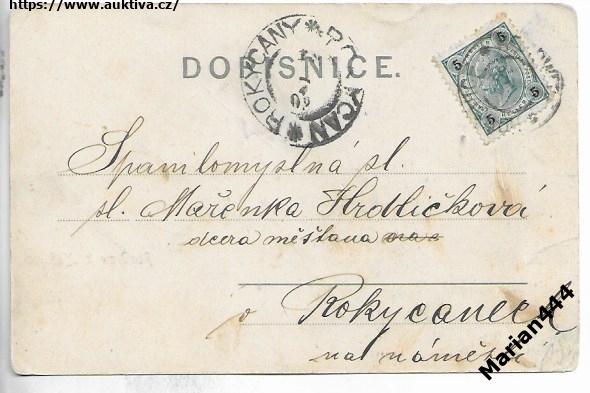 https://www.auktiva.cz/
DOPISNICE.
ROKYCANY * ROKYCANY *
5 5
5 5
Spanilomyslná sl.
sl. Mařenka Hrdličková
dcera měšťana
v Rokycanech
na náměstí
Marian444